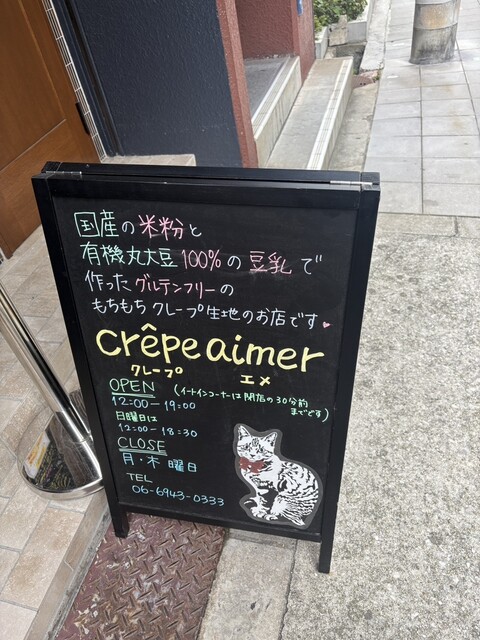 国産の米粉と
有機丸大豆100%の豆乳で
作ったグルテンフリーの
もちもちクレープ生地のお店です
crêpe aimer
クレープ エメ
OPEN (イートインコーナーは閉店の30分前
12:00-19:00 までです)
日曜日は
12:00-18:30
CLOSE
月・木曜日
TEL
06-6943-0333